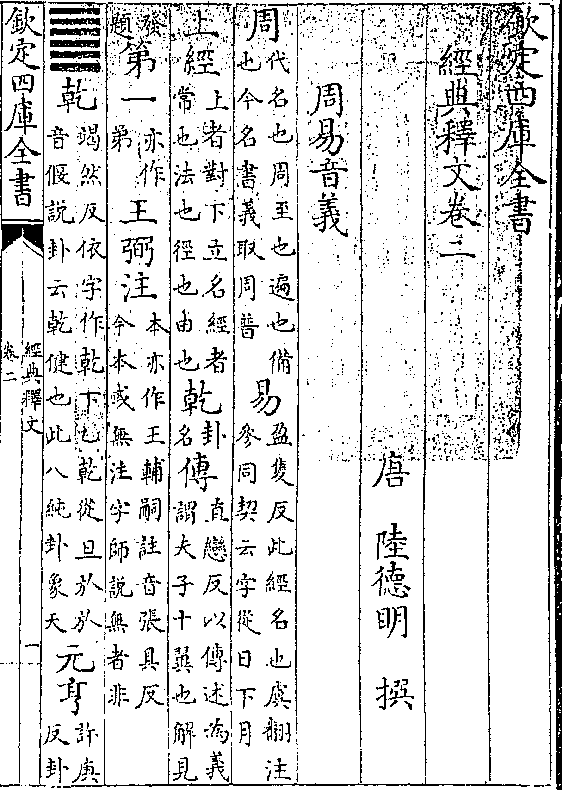 欽定四庫全書
經典釋文卷二
唐 陸德明 撰
周易音義
周代名也周至也遍也備也今名書義取周普易盈隻反此經名也虞翻注參同契云字從日下月
上經上者對下立名經者常也法也徑也由也乾卦名傳直戀反以傳述為義謂夫子十翼也解見
發題第一亦作弟王弼注本亦作王輔嗣註音張具反今本或無注字師說無者非
䷀乾竭然反依字作乾下乙乾從旦於於音偃說卦云乾健也此八純卦象天元亨許庚反卦
欽定四庫全書
經典釋文
卷二
一